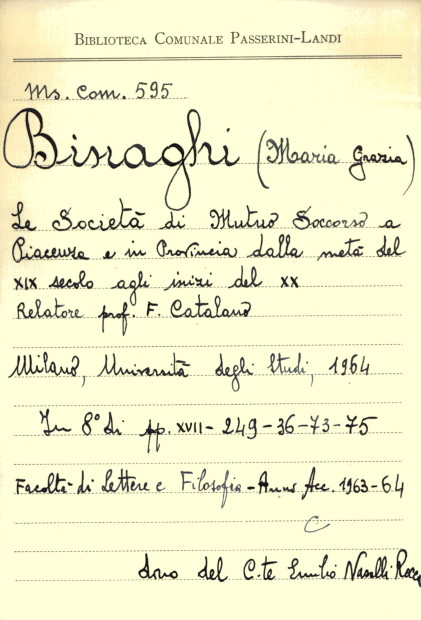 BIBLIOTECA COMUNALE PASSERINI-LANDI
Ms. Com. 595
Binaghi (Maria Grazia)
Le Società di Mutuo Soccorso a
Piacenza e in Provincia dalla metà del
XIX secolo agli inizi del XX
Relatore prof. F. Catalano
Milano, Università degli Studi, 1964
In 8° di pp. XVII-249-36-73-75
Facoltà di Lettere e Filosofia - Anno Acc. 1963-64
C
dono del C.te Emilio Nasalli Rocca